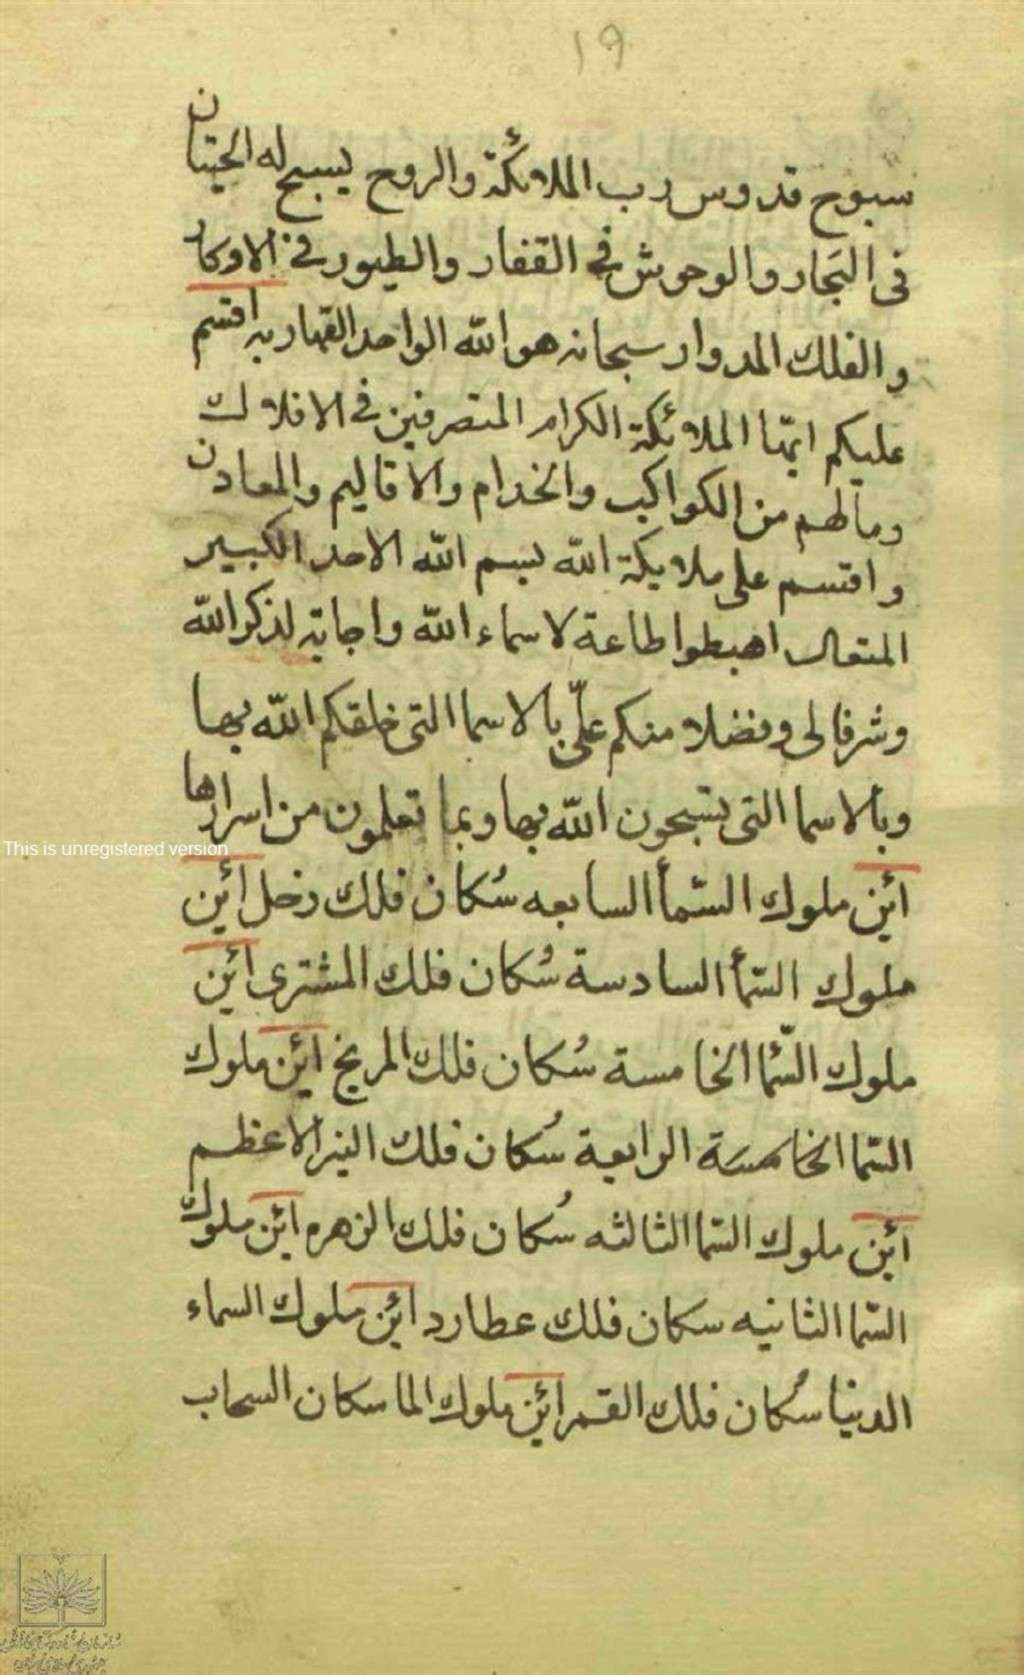 ١٩
سبوح قدوس رب الملائكة والروح يسبح له الحيتان
فى البحار والوحوش فى القفار والطيور فى الاوكار
والفلك المدوار سبحانه هو الله الواحد القهار به اقسم
عليكم ايتها الملائكة الكرام المتصرفين فى الافلاك
ومالهم من الكواكب والخدام والاقاليم والمعادن
واقسم على ملايكة الله بسم الله الاحد الكبير
المتعال اهبطوا طاعة لاسماء الله واجابة لذكر الله
وشرفا لى وفضلا منكم علّى بالاسما التى خلقكم الله بها
وبالاسما التى تسبحون الله بها وبما تعلمون من اسرارها
This is unregistered version
ائين ملوك السّمأ السابعه سُكان فلك زحل ائين
ملوك السّمأ السادسة سُكان فلك المشترى ائين
ملوك السّما الخامسة سُكان فلك المريخ ائين ملوك
السّما الخامسة الرابعة سُكان فلك النير الاعظم
ائين ملوك السّما الثالثه سُكان فلك الزهره ائين ملوك
السّما الثانيه سكان فلك عطارد ائين ملوك السماء
الدنيا سُكان فلك القمر ائين ملوك الما سكان السحاب